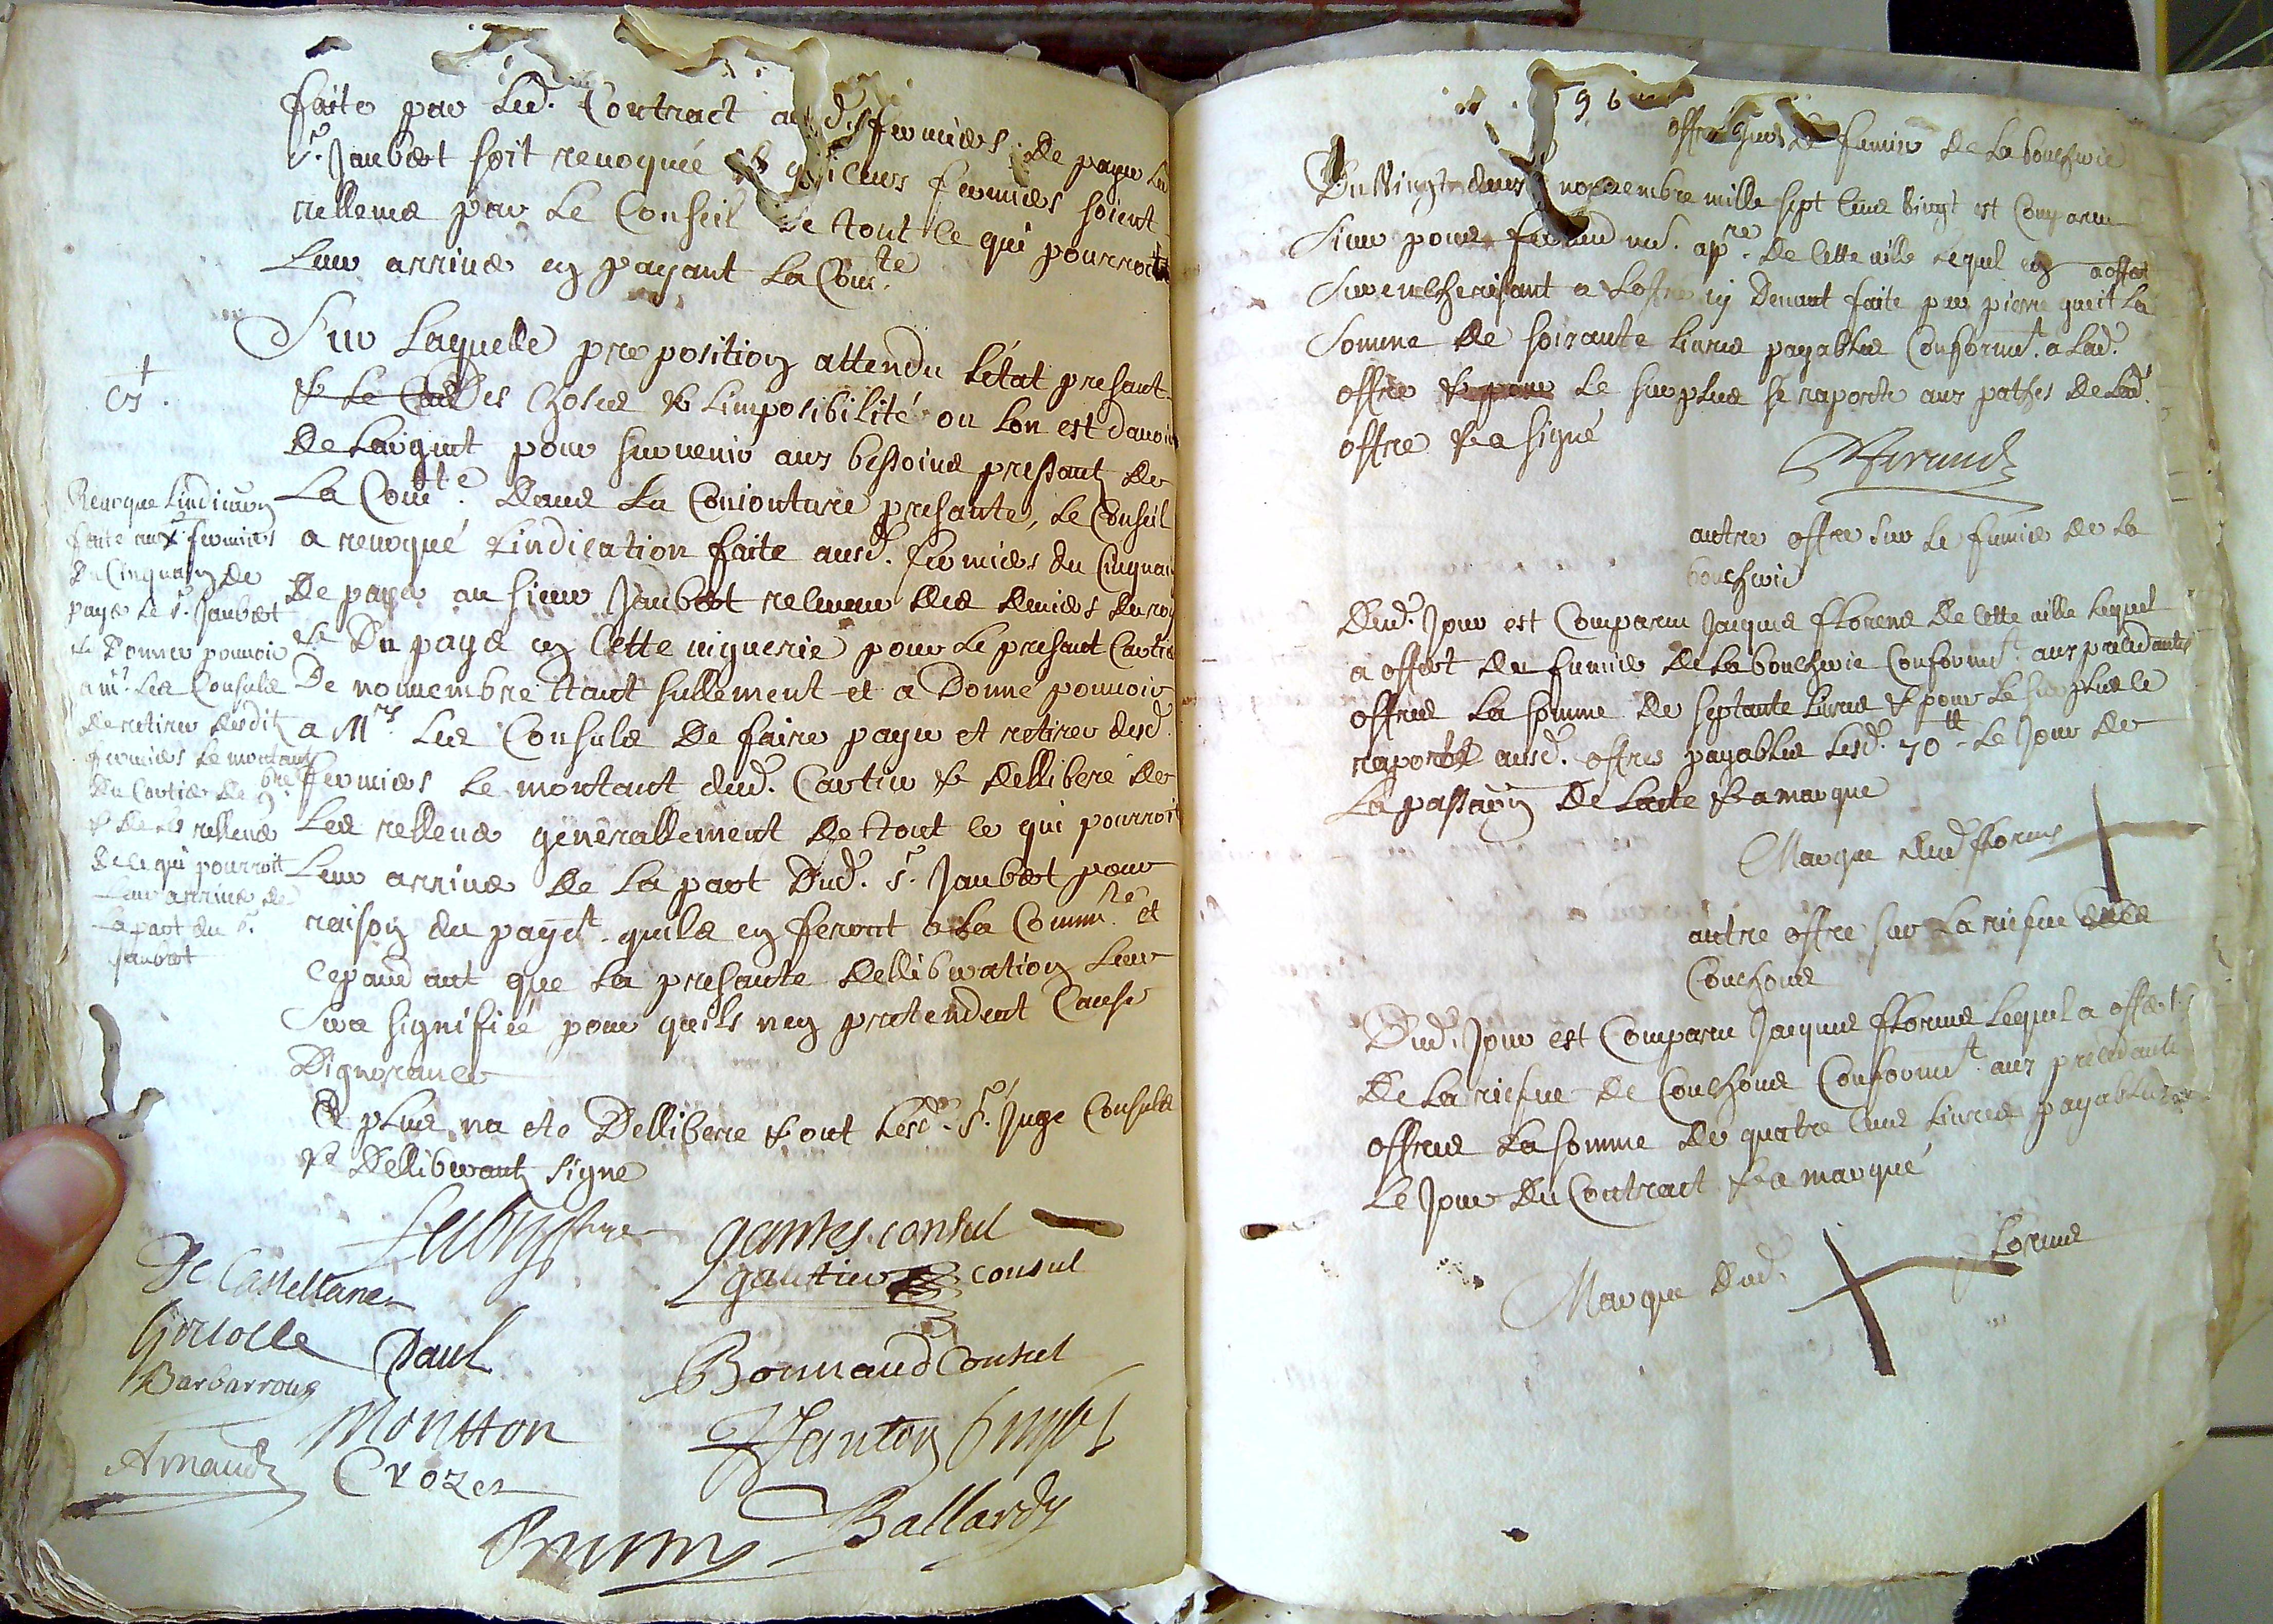 faite par led. Contract aux d. fermiers de payer led
sr. Jaubert soit revoquée & q iceux fermiers soient
rellevés par le Conseil de ttout ce qui pourroit
leur arriver en payant la Comté
Sur laquelle preposition attendu l'état presant
& le Cas des choses & limposibilité ou lon est davoir
+
cy.
de largent pour survenir aux bessoins pressant de
La Comte. dans la Conionture presante, le Conseil
a revoqué l'indication faite ausd. fermiers du Cinquain
de payer au sieur Jaubert receveur des deniers du roy
et Du paya en cette viguerie pour le presant Cartier
De novembre ttant sullement et a Donné pouvoir
a Mrs les Consuls De faire payer et retirer desd.
fermiers le montant dud. Cartier & delliberé de
Les rellever généralement de ttout ce qui pourroit
Leur arriver de la part Dud. sr. Jaubert pour
raison du payet. quils en feront a la Commté et
cepandant que la presante delliberation leur
Sera signifiée pour quils nen pretendent Cause
Dignorance
Revoque lindicaon
faite aux fermiers
Du Cinquain de
payer le sr. Jaubert
& Donner pouvoir
a mrs. les Consuls
de retirer desdit
fermiers le montant
du Cartier de 9bre
& de les rellever
de ce qui pourroit
leur arriver de
la part du sr.
Jaubert
Et plus na ete Delliberé & ont lesd. srs. Juge Consuls
& Delliberants signé
gantes. consul
De Castellane
gautier consul
Paul
Bonnaud Consul
Barbarroux
Montton
Arnaud
Crozes
Ballardy
96
offre sur le fumier de la boucherie
Du Vingt deux novembre mille sept cens vingt est Comparu
Sieur pons feraud md. apre. de cette ville lequel en a offert
Surencherissant a loffre cy Devant faite par pierre gueit La
Somme de soixante livres payables Conformt. a lad.
offre & pour le surplus se raporte aux pathes de lad.
offre & a signé
Feraud
autre offre sur le fumier de la
boucherie
Dud. Jour est Comparu Jacques fflorens de cette ville lequel
a offert du fumier de la boucherie Conformt. aux precedantes
offres la somme de septante livres & pour le surplus se
raporte ausd. offres payables lesd. 70 tt le Jour de
La passaon de lacte & a marque
Marque dud fflorens
autre offre sur la riefue des
Couchons
Dud. Jour est Comparu Jacques fflorens lequel a offert
de la riefue de Couchons Conformt. aux precedante
offres la somme de quatre cens livres payables
le Jour du Contract & a marqué
Marque dud. florens